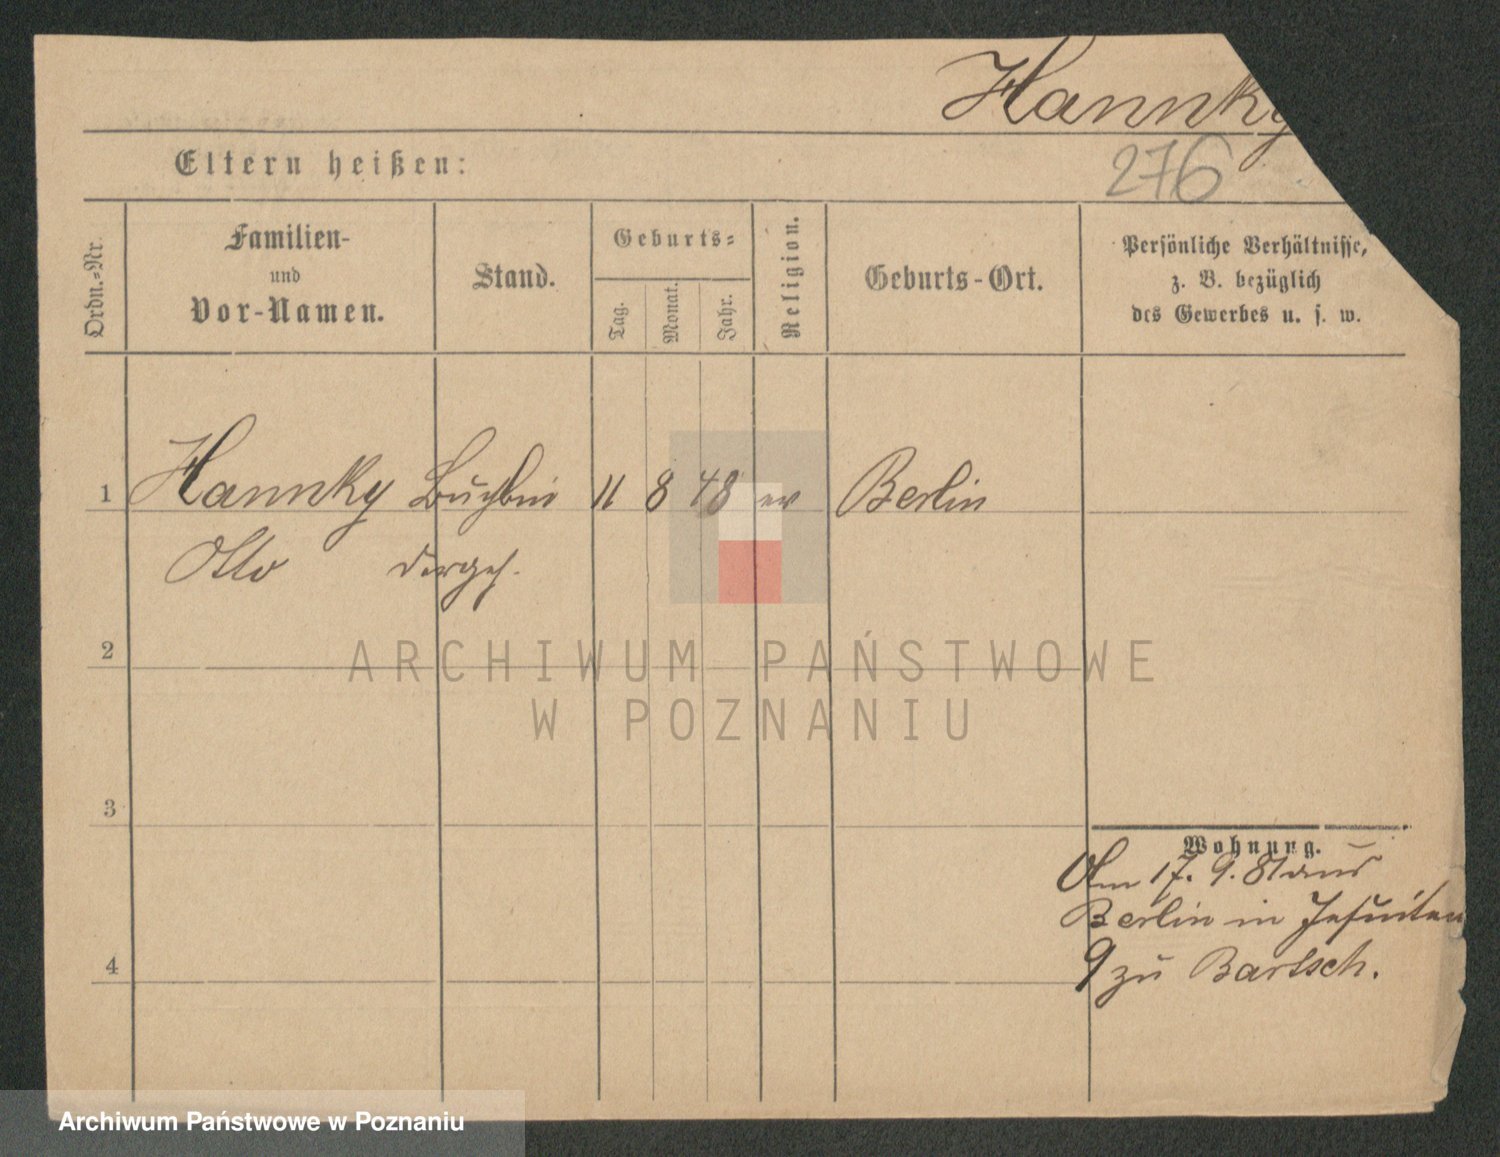 Hannky
276
Eltern heißen:
Ordn.-Nr.
Familien-
und
Vor-Namen.
Stand.
Geburts-
Tag.
Monat.
Jahr.
Religion.
Geburts-Ort.
Persönliche Verhältnisse,
z. B. bezüglich
des Gewerbes u. s. w.
1 Hannky 11 8 48 ev Berlin
Otto
2
ARCHIWUM PAŃSTWOWE
W POZNANIU
3
Wohnung.
Am 17. 9. 81 aus
Berlin in Jesuiten
4
9 zu Bartsch.
Archiwum Państwowe w Poznaniu